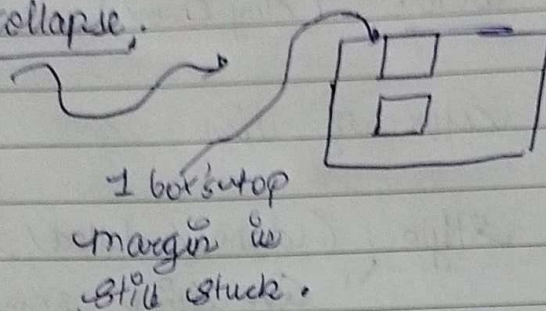 ollapse.
1 box's top
margin is
still stuck.